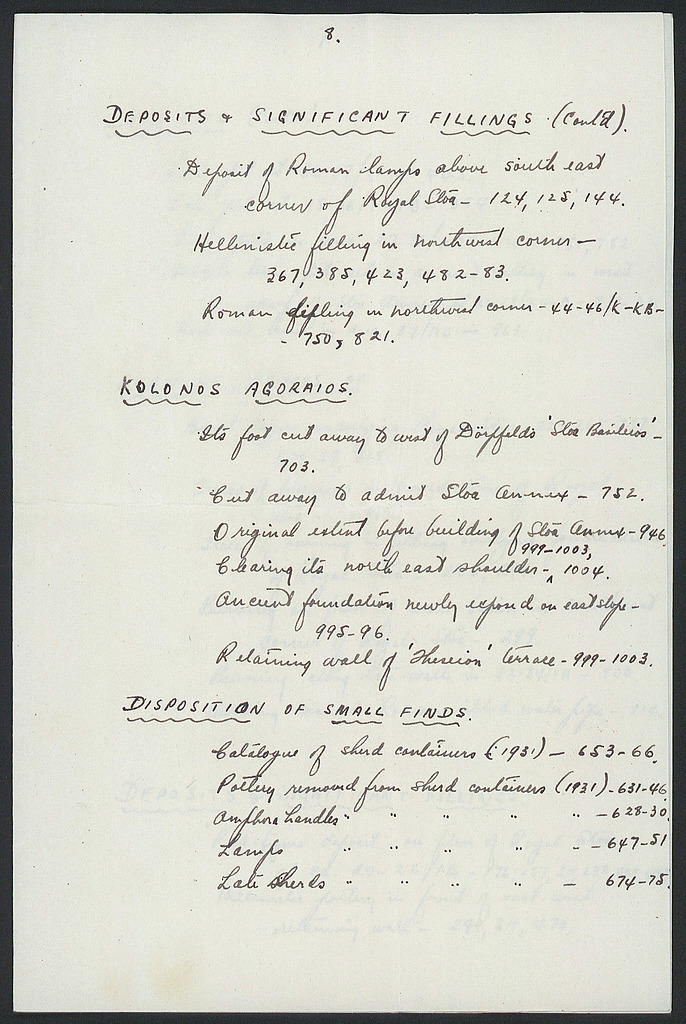 8.
DEPOSITS & SIGNIFICANT FILLINGS (Cont'd).
Deposit of Roman lamps above south east
corner of Royal Stoa - 124, 125, 144.
Hellenistic filling in northwest corner -
367, 385, 423, 482-83.
Roman filling in northwest corner - 44-46/K-KB-
- 750, 821.
KOLONOS AGORAIOS.
Its foot cut away to west of Dörpfeld's 'Stoa Basileios' -
703.
Cut away to admit Stoa Annex - 752.
Original extent before building of Stoa Annex - 946
999-1003,
Clearing its north east shoulder - ^ 1004.
Ancient foundation newly exposed on east slope -
995-96.
Retaining wall of 'Theseion' terrace - 999-1003.
DISPOSITION OF SMALL FINDS.
Catalogue of sherd containers (1931) - 653-66.
Pottery removed from sherd containers (1931) - 631-46
Amphora handles " " " " " - 628-30
Lamps " " " " " - 647-51
Late sherds " " " " - 674-75.